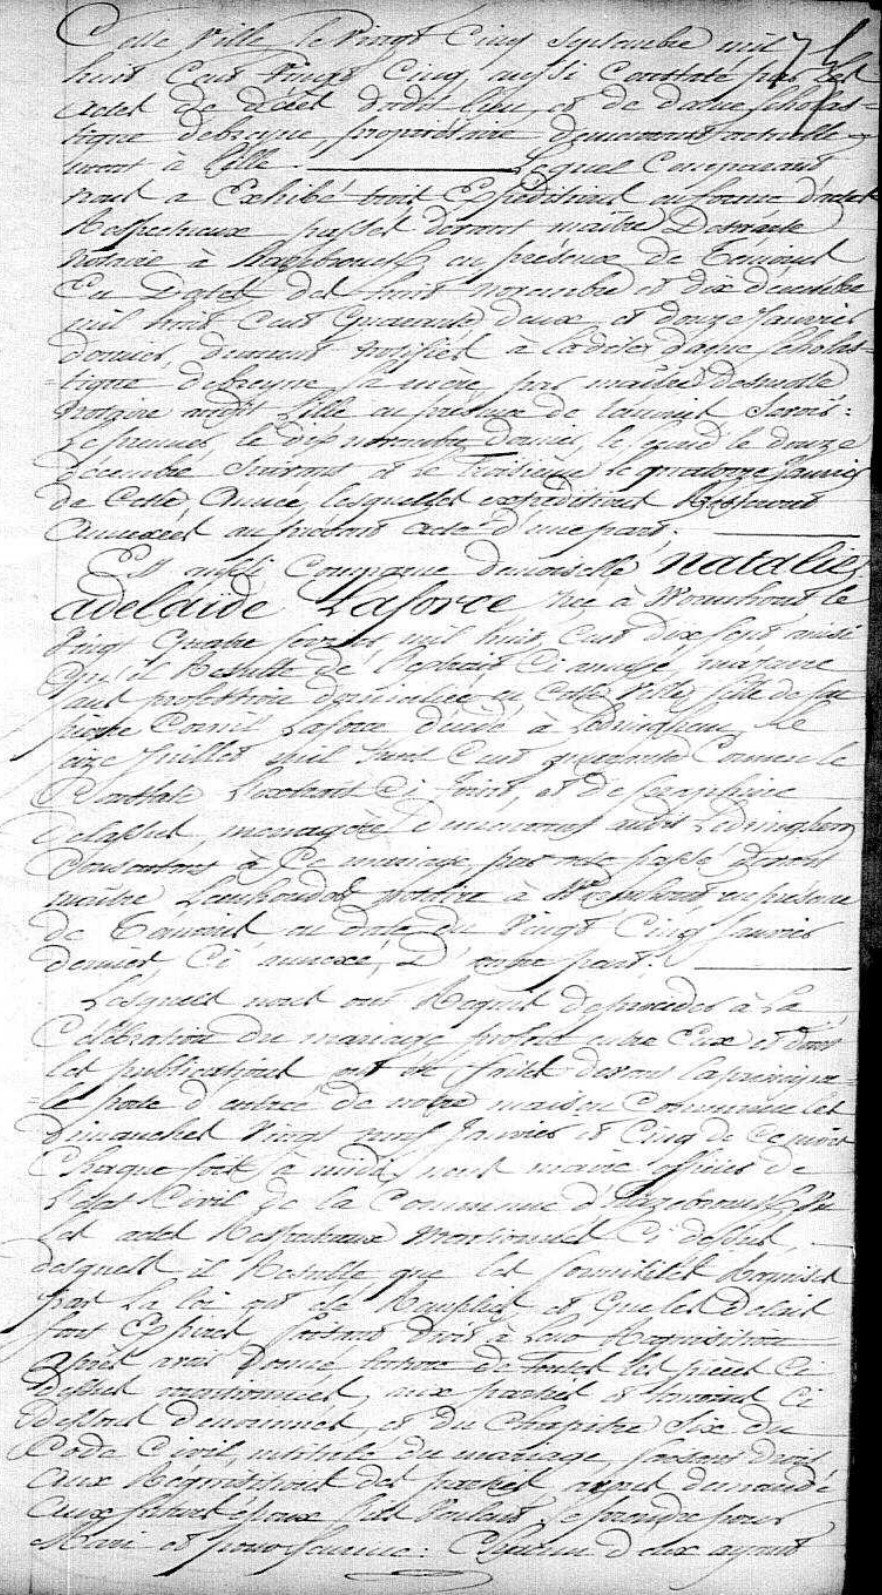 Cette Ville le Vingt Cinq Septembre mil
huit Cent Vingt Cinq, aussi Constaté par les
actes de décès dudit lieu, et de dame Scholas-
tique debreyne, propriétaire demeurant actuelle-
ment à Lille. lequel Comparant
nous a Exhibé trois Expéditions en forme d'actes
Respectueux passés devant maître
Notaire à hazebrouck en présence de Témoins
En Dates des huit novembre et dix décembre
mil huit Cent Quarante deux et douze Janvier
dernier, dûment notifiés à ladite dame Scholas-
tique debreyne sa mère, par maître
Notaire audit Lille en présence de témoins Savoir :
Le premier, le dix novembre dernier, le second le douze
décembre Suivant et le Troisième le quatorze Janvier
de Cette Année, lesquelles expéditions Resteront
Annexées au présent acte d'une part ;
Est aussi Comparue demoiselle Natalie
adelaïde Laforce née à Wormhout le
Vingt Quatre février mil huit Cent dix sept ainsi
Qu'il Résulte de l'extrait Ci annexé, majeure
sans profession domiciliée en Cette Ville fille de feu
pierre Cornil Laforce décédé à Ledringhem le
seize Juillet mil huit Cent quarante Comme le
Constate l'extrait Ci Joint, et de Séraphine
ménagère demeurant audit Ledringhem
Consentant à Ce mariage par acte passé devant
maître notaire à Wormhout en présence
de Témoins en date du Vingt Cinq Janvier
dernier, Ci annexé, D'autre part.
Lesquels nous ont Requis de procéder à La
Célébration du mariage projeté entre Eux et dont
les publications ont été faites devant la principa-
le porte d'entrée de notre maison Commune les
Dimanches Vingt neuf Janvier et Cinq de Ce mois
Chaque fois à midi, nous maire officier de
l'état Civil de la Commune d'hazebrouck, Vu
les actes Respectueux Mentionnés Ci dessus,
desquels il Résulte que les formalités Requises
par La loi ont été Remplies et Que les Délais
sont Expirés faisant droit à leur Réquisition
après avoir Donné lecture de Toutes les pièces Ci
Dessus mentionnées, aux parties et témoins Ci
Dessous dénommés, et du Chapitre Six du
Code Civil, intitulé du mariage, faisant Droit
aux Réquisitions des parties avons demandé
aux futurs époux s'ils Veulent se prendre pour
Mari et pour femme : Chacun d'eux ayant